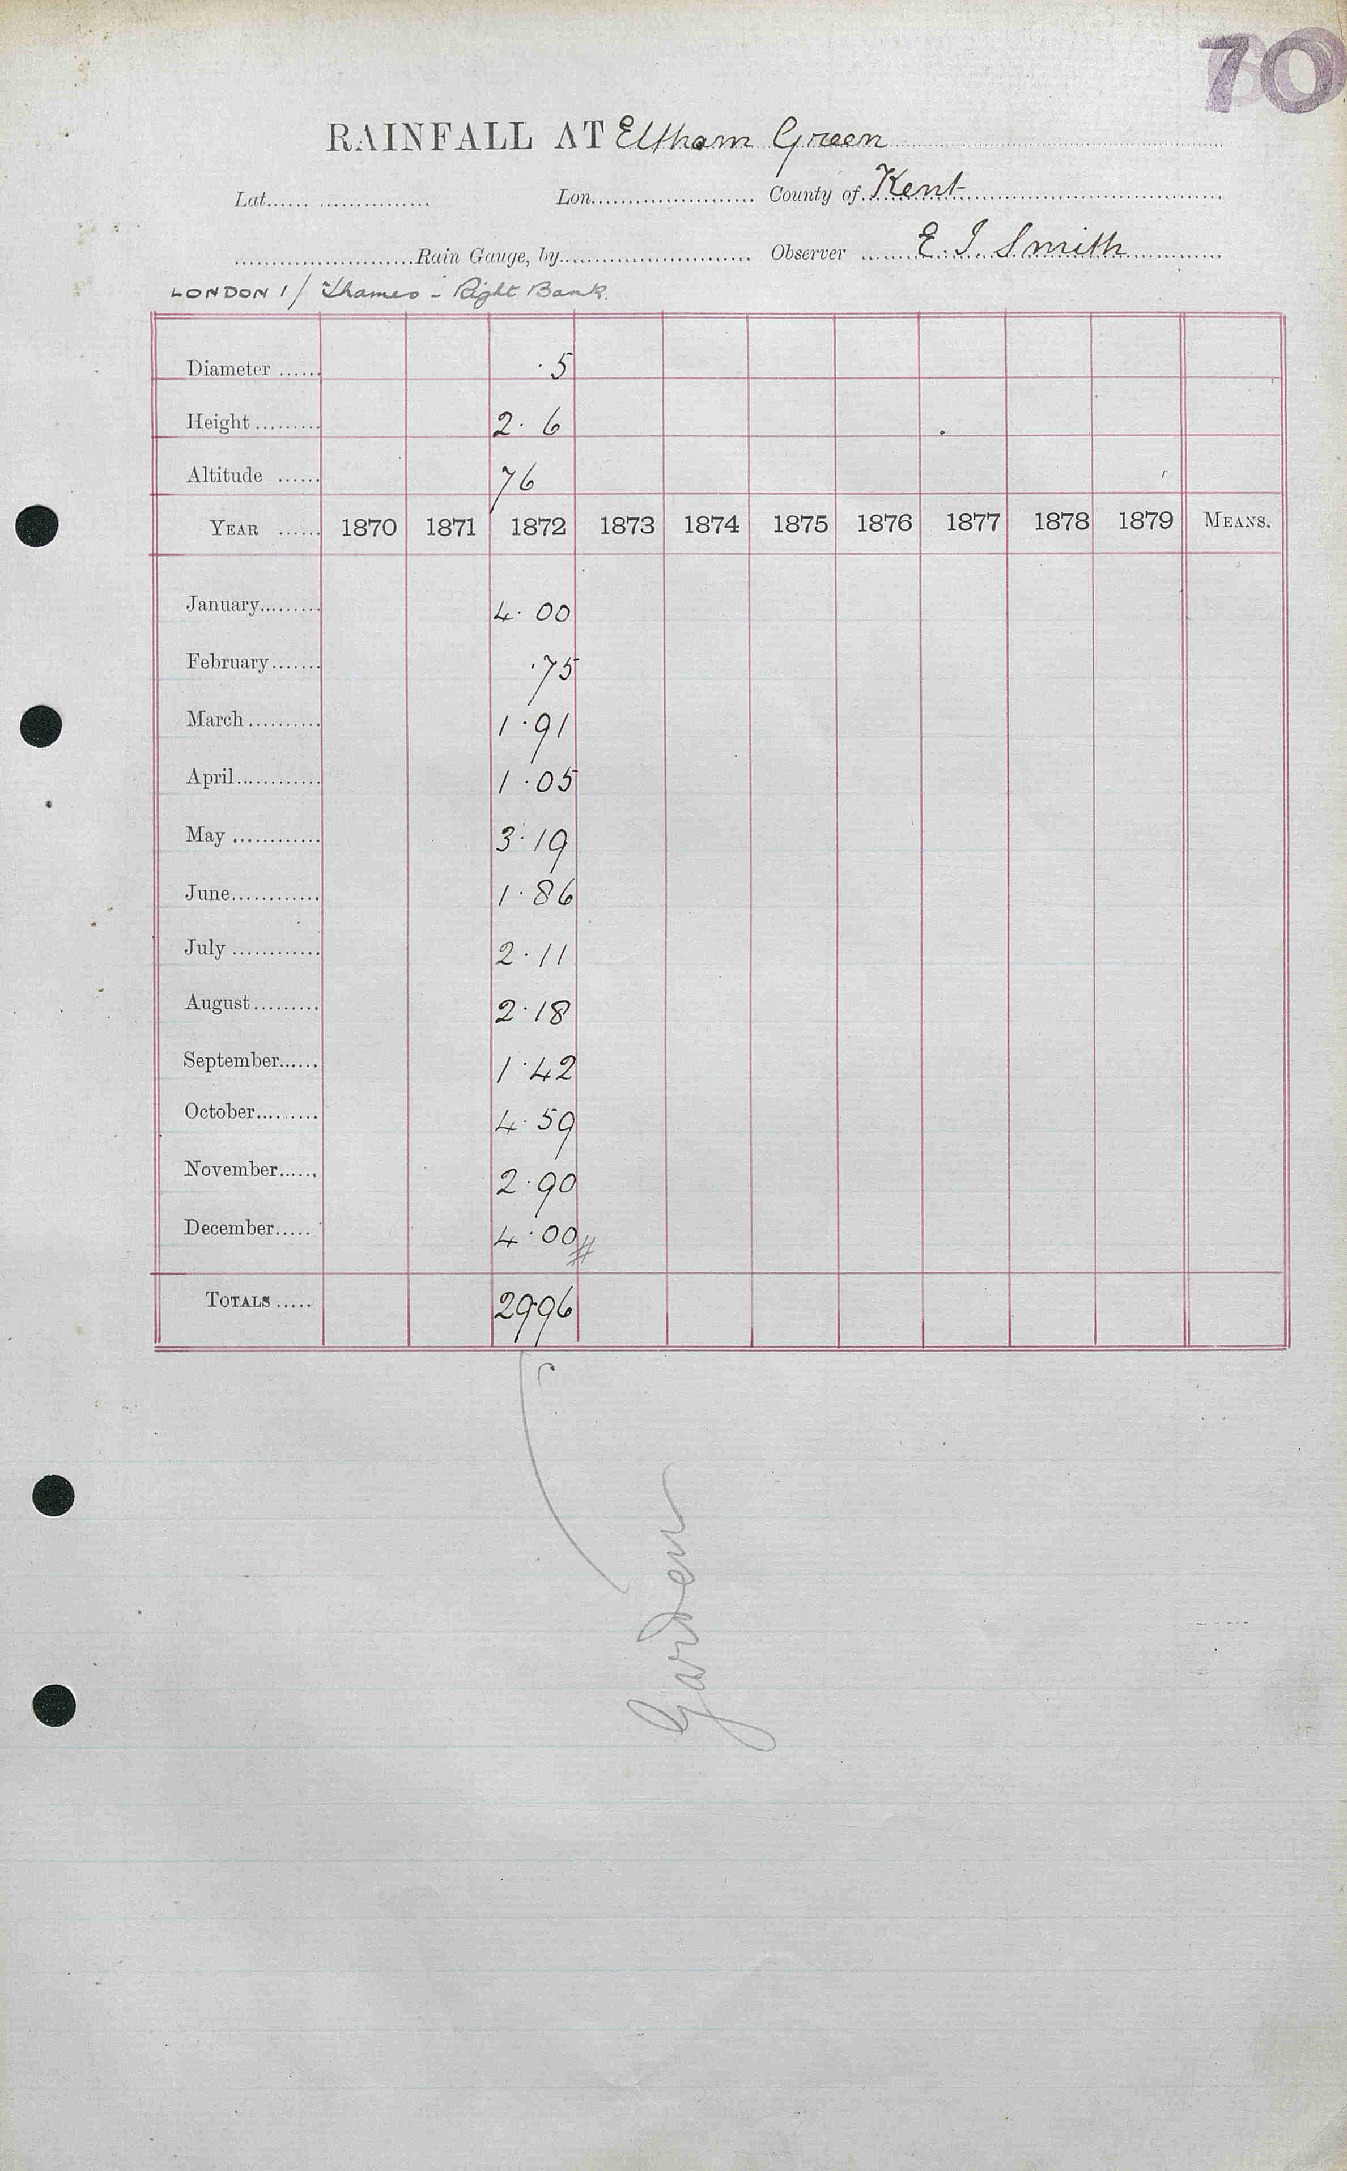 70
RAINFALL AT Eltham Green
Lat. Lon. County of Kent
Rain Gauge, by Observer E. J. Smith
LONDON 1 / Thames - Right Bank.
Diameter ·5
Height 2. 6
Altitude 76
YEAR 1870 1871 1872 1873 1874 1875 1876 1877 1878 1879 MEANS.
January 4·00
February ·75
March 1·91
April 1·05
May 3·19
June 1·86
July 2·11
August 2·18
September 1·42
October 4·59
November 2·90
December 4·00 #
TOTALS 29·96
Garden